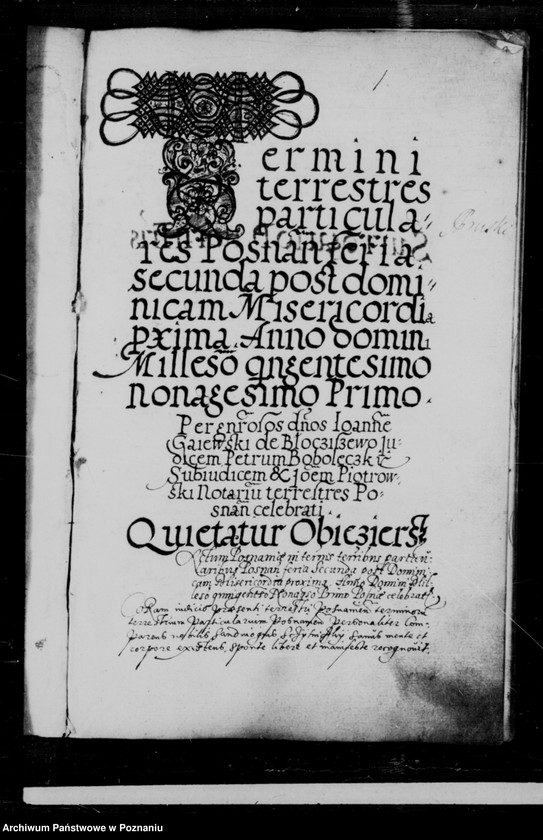 1
Termini
terrestres
particula-
res Posnan feria
secunda post domi-
nicam Misericordia
pxima. Anno domini
Milleso qngentesimo
nonagesimo Primo.
Per gnrosos dnos Ioanne
Gaiewski de Błocziszewo Ju-
dicem Petrum Boboleczki
Subiudicem & Joem Piotrow-
ski Notariu terrestres Po-
snan celebrati.
Quietatur Obieziersk
Actum Posnaniae in termis terribus particu-
laribus Posnan feria Secunda post Domini-
cam Misericordia proxima Anno Domini Mil-
leso qningenteso Nonageso Primo Posnae celebrat
Coram iudicio praesenti terrestri Posnanien terminorum
terrestrium Particularium Posnanien Personaliter Com-
parens nobilis sanus mente et
corpore existens, sponte libere et manifeste recognovit
Archiwum Państwowe w Poznaniu